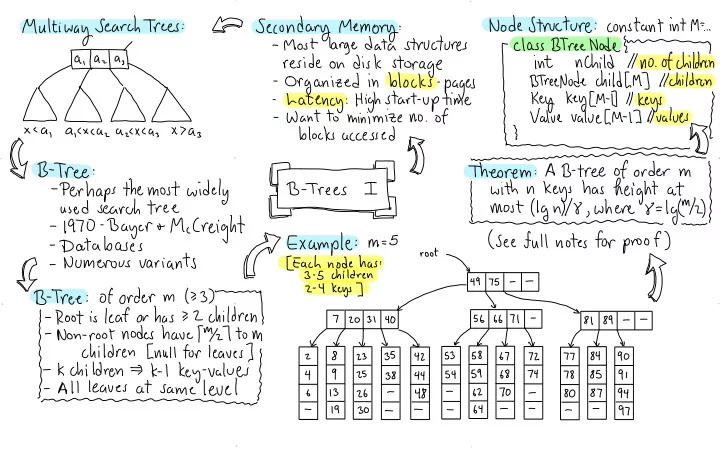 Multiway Search Trees:
a₁ a₂ a₃
x<a₁ a₁<x<a₂ a₂<x<a₃ x>a₃
B-Tree:
- Perhaps the most widely
used search tree
- 1970 - Bayer + McCreight
- Databases
- Numerous variants
B-Tree: of order m (≥3)
- Root is leaf or has ≥2 children
- Non-root nodes have ⌈m/2⌉ to m
children [null for leaves]
- k children ⇒ k-1 key-values
- All leaves at same level
Secondary Memory:
- Most large data structures
reside on disk storage
- Organized in blocks - pages
- Latency: High start-up time
- Want to minimize no. of
blocks accessed
B-Trees I
Example: m=5
[Each node has:
3-5 children
2-4 keys]
Node Structure: constant int M=...
class BTreeNode {
int nChild //no. of children
BTreeNode child[M] //children
Key key[M-1] //keys
Value value[M-1] //values
}
Theorem: A B-tree of order m
with n keys has height at
most (lg n)/γ, where γ=lg(m/2)
(See full notes for proof)
root
49 75 - -
7 20 31 40 56 66 71 - 81 89 - -
2 8 23 35 42 53 58 67 72 77 84 90
4 9 25 38 44 54 59 68 74 78 85 91
6 13 26 - 48 - 62 70 - 80 87 94
- 19 30 - - - 64 - - - - 97